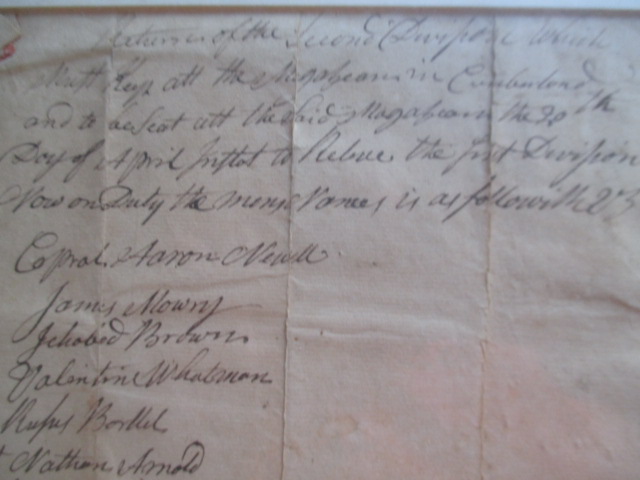 Returns of the Second Divison Which
Must Keep att the Magaseans in Cumberland
and to be Seat att the Said Magaseans the 20th
Day of April Instot to Releve the first Division
Now on Duty the mens Names is as followith Viz
Copral Aaron Newell
James Mowry
Jchabod Brown
Valentine Whatman
Rufus Bortlet
Nathan Arnold